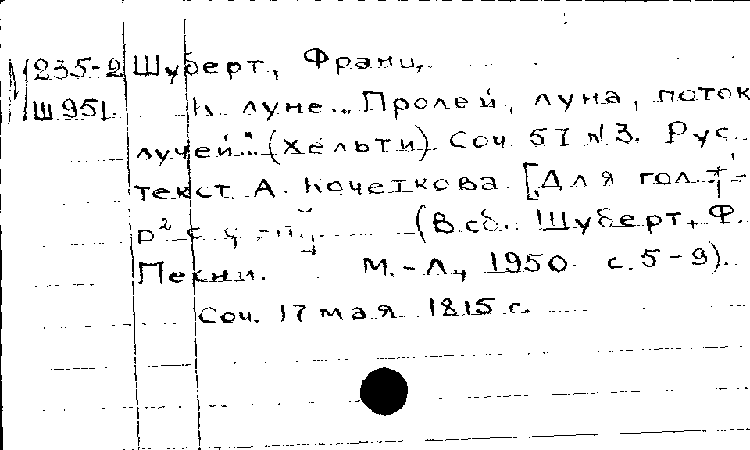 235-2 Шуберт, Франц.
Ш 951. К луне. "Пролей, луна, поток
лучей" (Хельти). Соч. 57 №3. Рус.
текст А. Кочеткова. [Для гол.
(В сб. Шуберт, Ф.
Песни. М.-Л., 1950 с. 5-9).
Соч. 17 мая 1815 г.